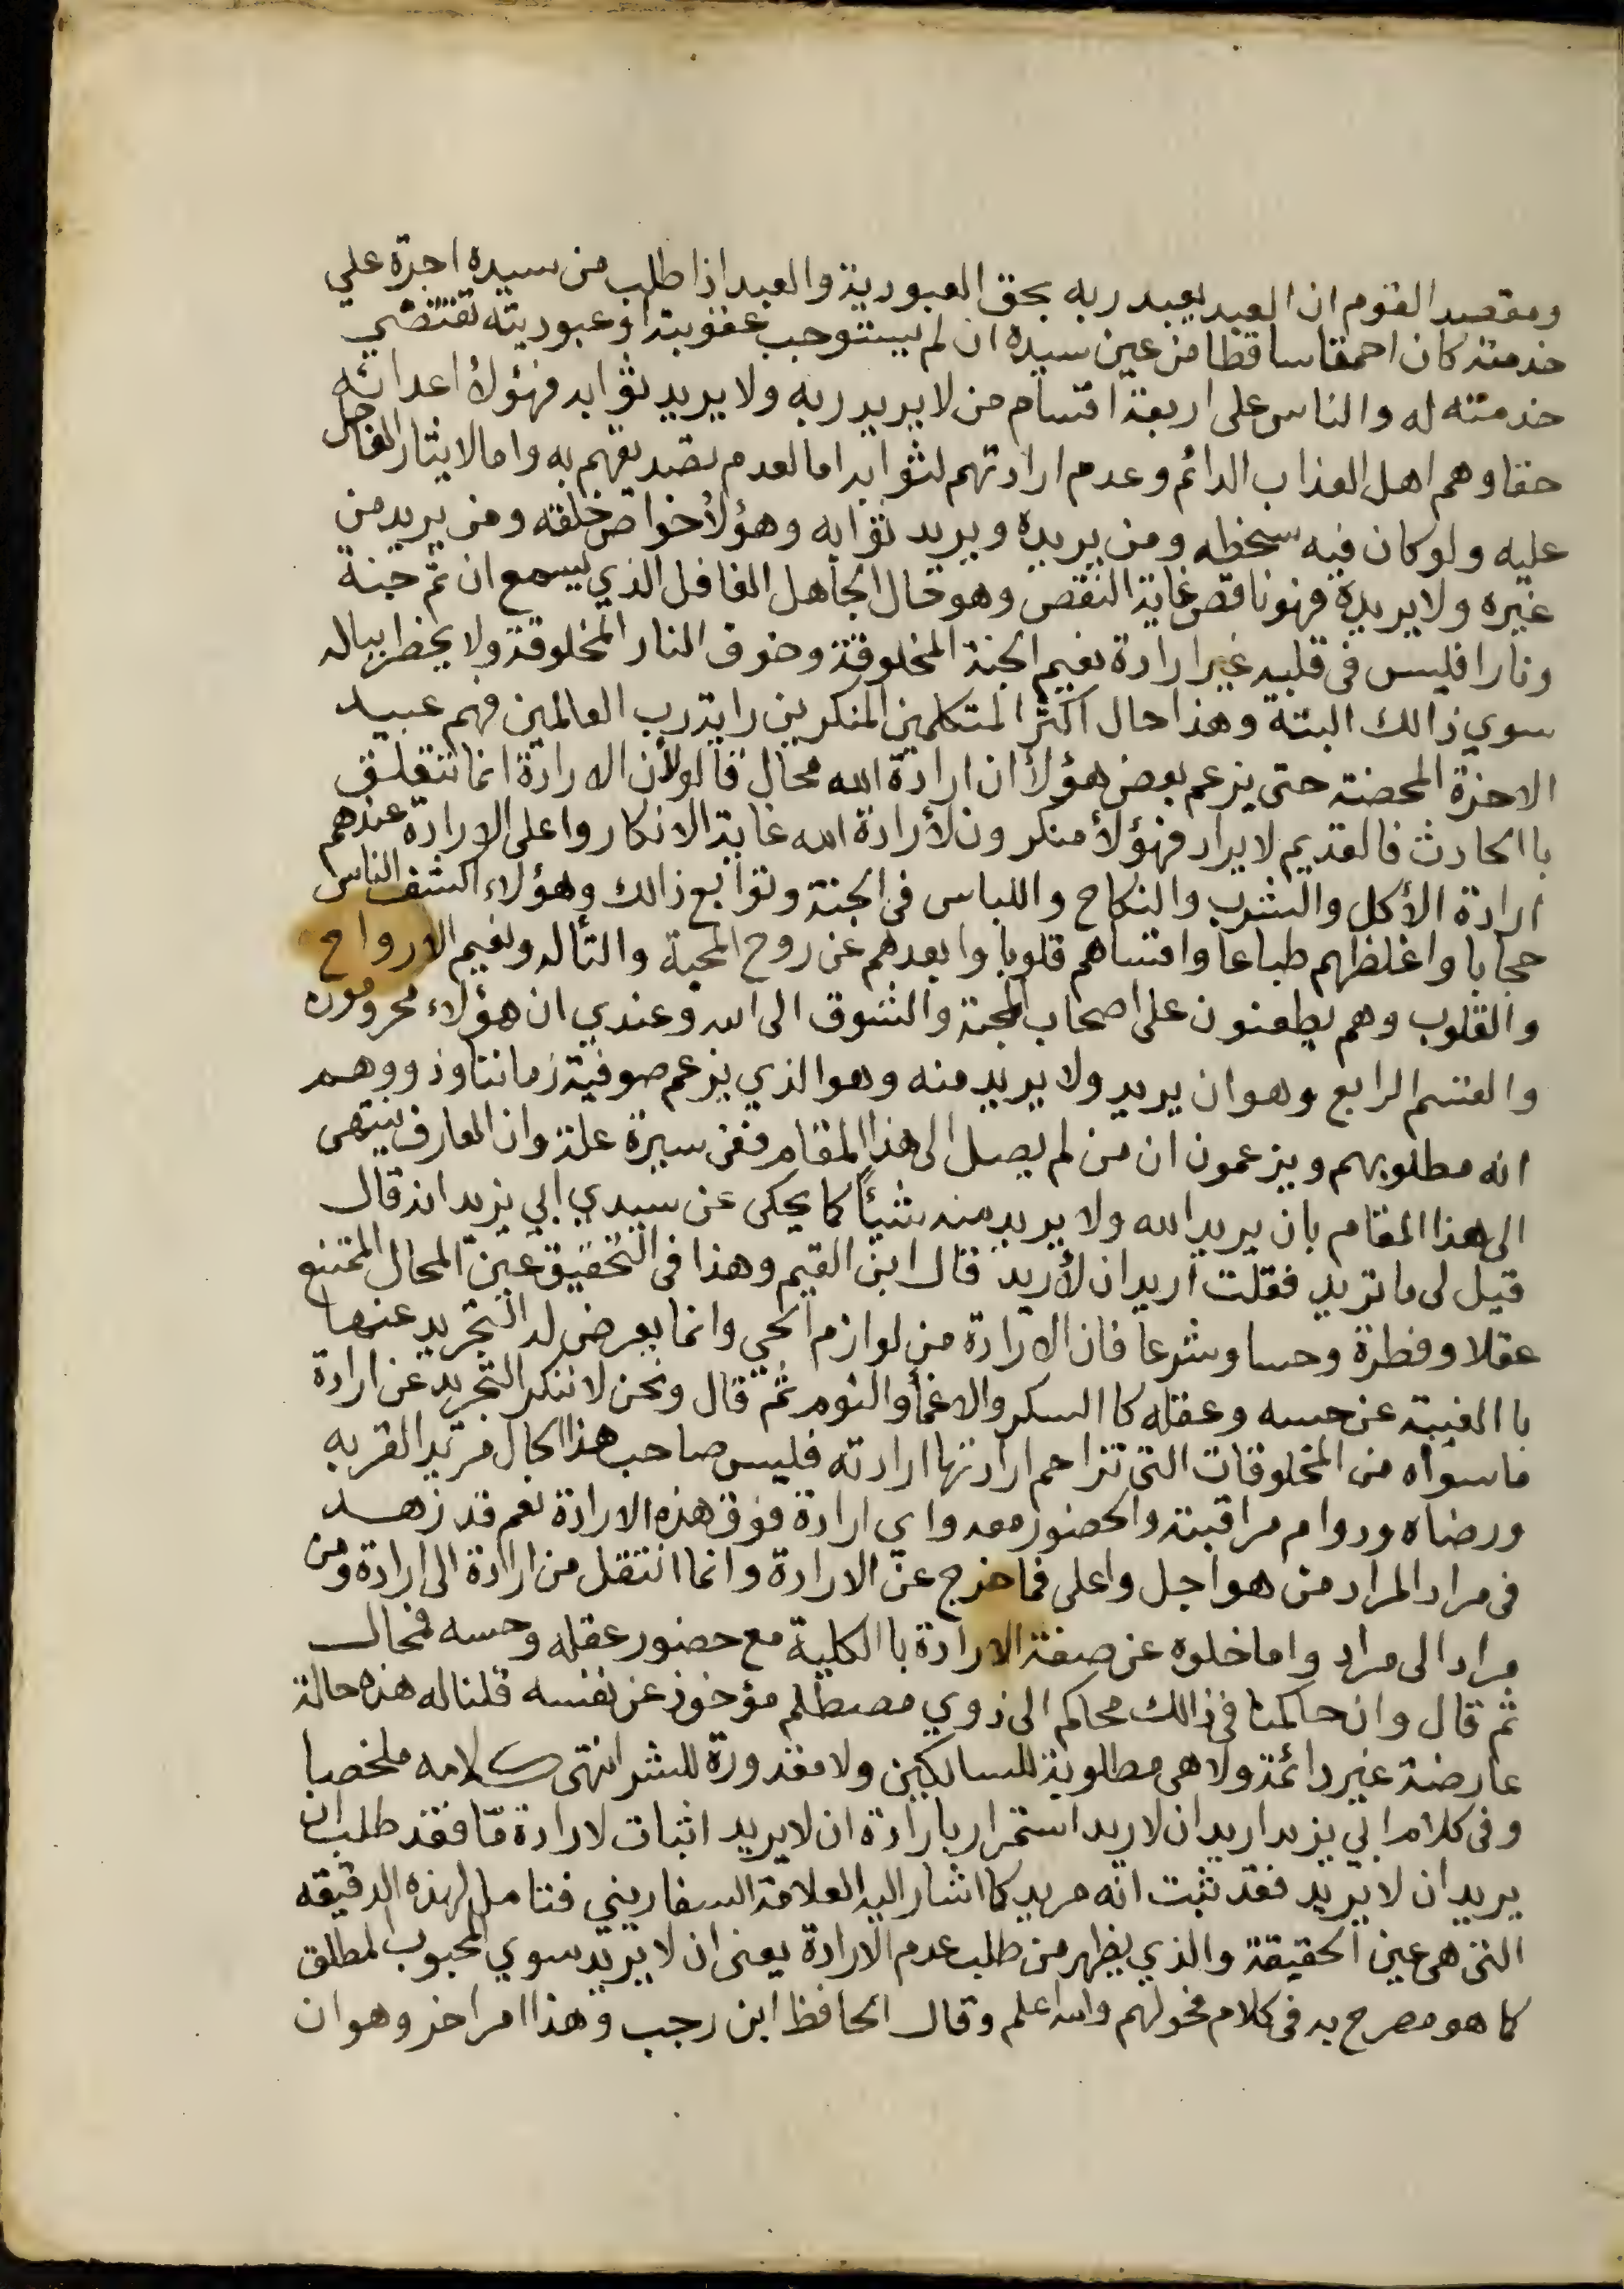 ومقصد القوم ان العبد يعبد ربه بحق العبودية والعبد اذا طلب من سيده اجرة علي
خدمته كان احمقا ساقطا من عين سيده ان لم يستوجب عقوبته اذ عبوديته تقتضي
خدمته له والناس على اربعة اقسام من لا يريد ربه ولا يريد ثوابه فهؤلأ اعدائه
حقا وهم اهل العذاب الدائم وعدم ارادتهم لثوابه اما لعدم تصديقهم به واما لايثار العاجل
عليه ولو كان فيه سخطه ومن يريده ويريد ثوابه وهؤلأ خواص خلقه ومن يريد من
غيره ولا يريده فهو ناقص غاية النقص وهو حال الجاهل الغافل الذي يسمع ان ثم جنة
ونارا فليس في قلبه غير ارادة نعيم الجنة المخلوقة وخوف النار المخلوقة ولا يخطر بباله
سوي ذالك البتة وهذا حال اكثر المتكلمين المنكرين راية رب العالمين فهم عبيد
الاجرة المحضة حتى يزعم بعض هؤلأ ان ارادة الله محال قالو لأن الارادة انما تتعلق
باالحادث فالقديم لا يراد فهؤلأ منكرون لأرادة الله غاية الانكار واعلى الارادة عندهم
ارادة الأكل والشرب والنكاح واللباس في الجنة وتوابع ذالك وهؤلاء اكشف الناس
حجابا واغلظهم طباعا واقساهم قلوبا وابعدهم عن روح المحبة والتأله ونعيم الارواح
والقلوب وهم يطعنون على اصحاب المحبة والشوق الى الله وعندي ان هؤلاء محرومون
والقسم الرابع وهو ان يريد ولا يريد منه وهو الذي يزعم صوفية زماننا وذووهم
انه مطلوبهم ويزعمون ان من لم يصل الى هذا المقام ففي سيرة علة وان العارف ينتهى
الى هذا المقام بان يريد الله ولا يريد منه شيأً كما يحكى عن سيدي ابي يزيد انه قال
قيل لى ما تريد فقلت اريد ان لأريد قال ابن القيم وهذا في التحقيق عين المحال الممتنع
عقلا وفطرة وحسا وشرعا فان الارادة من لوازم الحي وانما يعرض له التجريد عنها
باالغيبة عن حسه وعقله كاالسكر والاغمأ والنوم ثم قال ونحن لا ننكر التجريد عن ارادة
ما سواه من المخلوقات التي تزاحم ارادتها ارادته فليس صاحب هذا الحال مريد القربه
ورضاه ودوام مراقبته والحضور معه واي ارادة فوق هذه الارادة نعم قد زهد
في مراد المراد من هو اجل واعلى فما خرج عن الارادة وانما انتقل من ارادة الى ارادة ومن
مراد الى مراد واما خلوه عن صفة الارادة باالكلية مع حضور عقله وحسه فمحال
ثم قال وان حاكمنا في ذالك محاكم الى ذوي مصطلم مؤخوذ عن نفسه قلنا له هذه حالة
عارضة غير دائمة ولا هي مطلوبة للسالكين ولا مقدورة للبشر انتهى كلامه ملخصا
وفي كلام ابي يزيد اريد ان لا اريد استمرار بارادة ان لا يريد اثبات لارادة مّا فقد طلب ان
يريد ان لا يريد فقد ثبت انه مريد كما اشار اليه العلامة السفاريني فتامل لهذه الدقيقه
التي هي عين الحقيقة والذي يظهر من طلب عدم الارادة يعنى ان لا يريد سوي المحبوب المطلق
كما هو مصرح به في كلام فحولهم والله اعلم وقال الحافظ ابن رجب وهذا امر اخر وهو ان